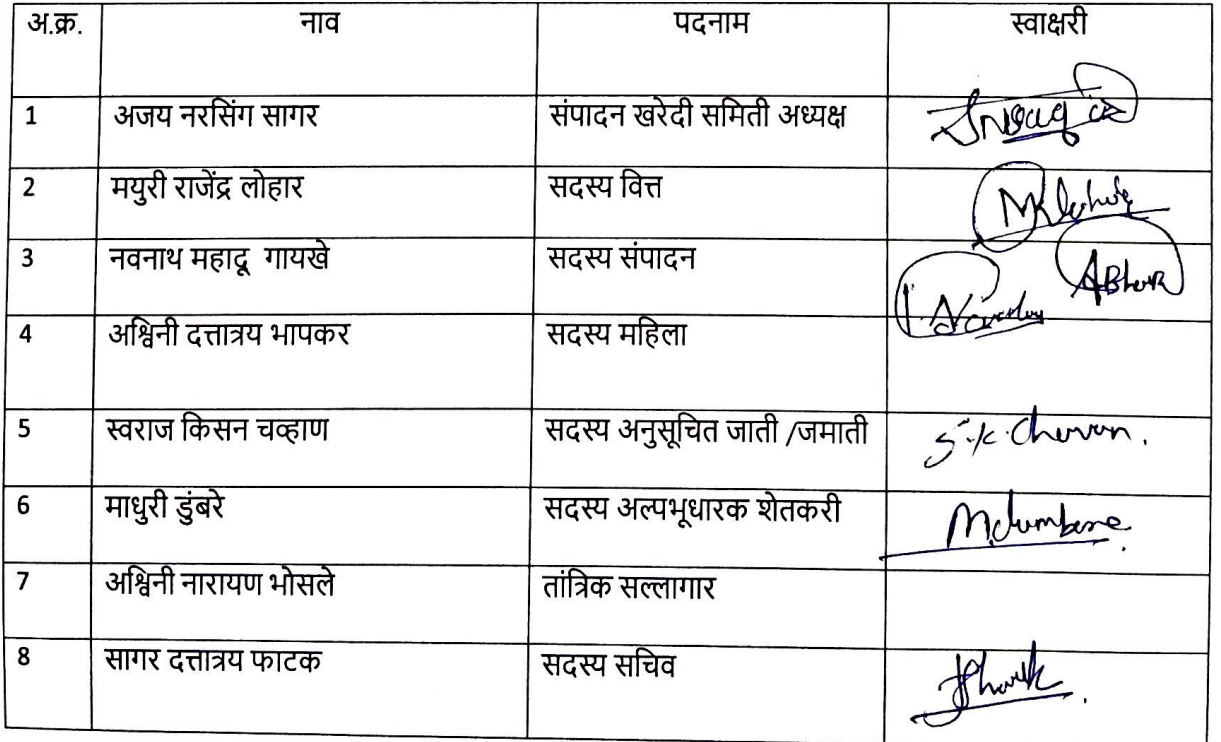 अ.क्र. नाव पदनाम स्वाक्षरी
1 अजय नरसिंग सागर संपादन खरेदी समिती अध्यक्ष
2 मयुरी राजेंद्र लोहार सदस्य वित्त
3 नवनाथ महादू गायखे सदस्य संपादन
4 अश्विनी दत्तात्रय भापकर सदस्य महिला
5 स्वराज किसन चव्हाण सदस्य अनुसूचित जाती /जमाती S.K. Chavan.
6 माधुरी डुंबरे सदस्य अल्पभूधारक शेतकरी Mdumbare
7 अश्विनी नारायण भोसले तांत्रिक सल्लागार
8 सागर दत्तात्रय फाटक सदस्य सचिव